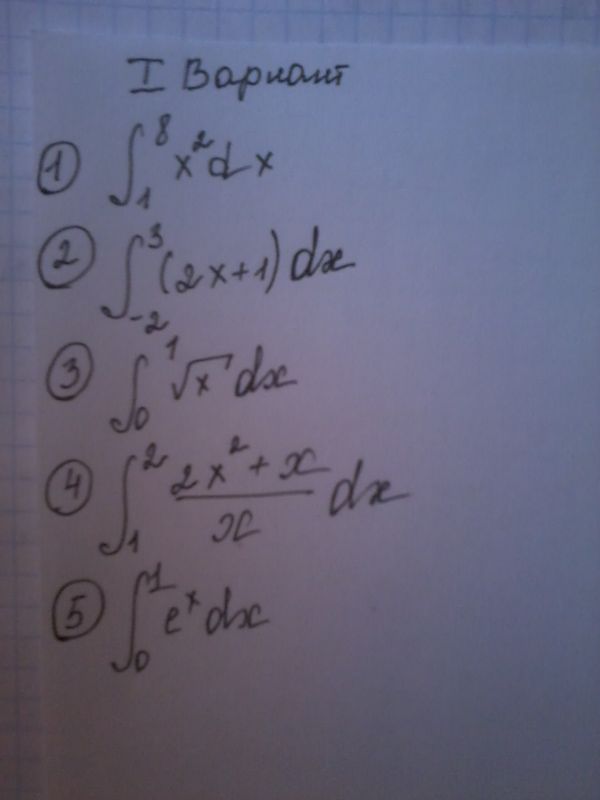 I Вариант
① ∫₁⁸ x² dx
② ∫₋₂³ (2x+1) dx
③ ∫₀¹ √x dx
④ ∫₁² (2x² + x)/x dx
⑤ ∫₀¹ eˣ dx